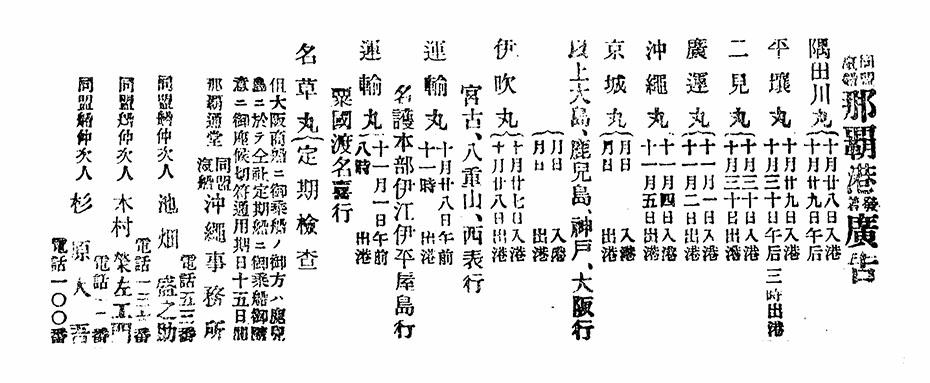 同盟
滊船
那覇港發着廣告
隅田川丸 十月廿八日入港
十月廿九日午后
平壤丸 十月廿九日入港
十月三十日午后三時出港
二見丸 十月三十日入港
十月三十一日出港
廣運丸 十一月一日入港
十一月二日出港
沖繩丸 十一月四日入港
十一月五日出港
京城丸 月日 入港
月日 出港
月日 入港
月日 出港
以上大島、鹿兒島、神戸、大阪行
伊吹丸 十月廿七日入港
十月廿八日出港
宮古、八重山、西表行
運輸丸 十月廿八日午前
十一時 出港
名護本部伊江伊平屋島行
運輸丸 十一月一日午前
八時 出港
粟國渡名喜行
名草丸 定期檢査
但大阪商船ニ御乘船ノ御方ハ鹿兒
島ニ於テ仝社定期船ニ御乘船御隨
意ニ御座候切符通用期日十五日間
那覇通堂 同盟滊船 沖繩事務所
電話五三番
同盟船仲次人 池畑盛之助
電話一三六番
同盟船仲次人 木村榮左衛門
電話一一番
同盟船仲次人 杉原人吾
電話一〇〇番